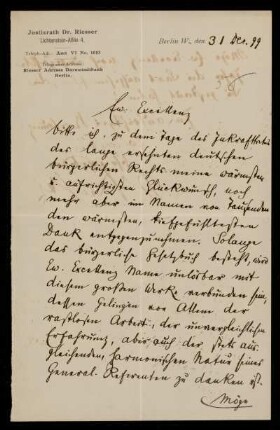 Justizrath Dr. Riesser
Lichtenstein-Allee 4.
Teleph.-Adr.: Amt VI Nr. 1683
Telegramm-Adresse:
Riesser Adresse Darmstadtbank
Berlin.
Berlin W., den 31 Dec. 99
Ew. Excellenz
bitte ich, zu dem Tage des Inkrafttretens
des lange ersehnten deutschen
bürgerlichen Rechts meine wärmsten
u. aufrichtigsten Glückwünsche, noch
mehr aber im Namen von Tausenden
den wärmsten, tiefgefühltesten
Dank entgegenzunehmen. Solange
das bürgerliche Gesetzbuch besteht, wird
Ew. Excellenz Name unlösbar mit
diesem großen Werke verbunden sein,
dessen Gelingen vor Allem der
rastlosen Arbeit, der unvergleichlichen
Erfahrung, aber auch der stets aus-
gleichenden, harmonischen Natur seines
General-Referenten zu danken ist.
Möge